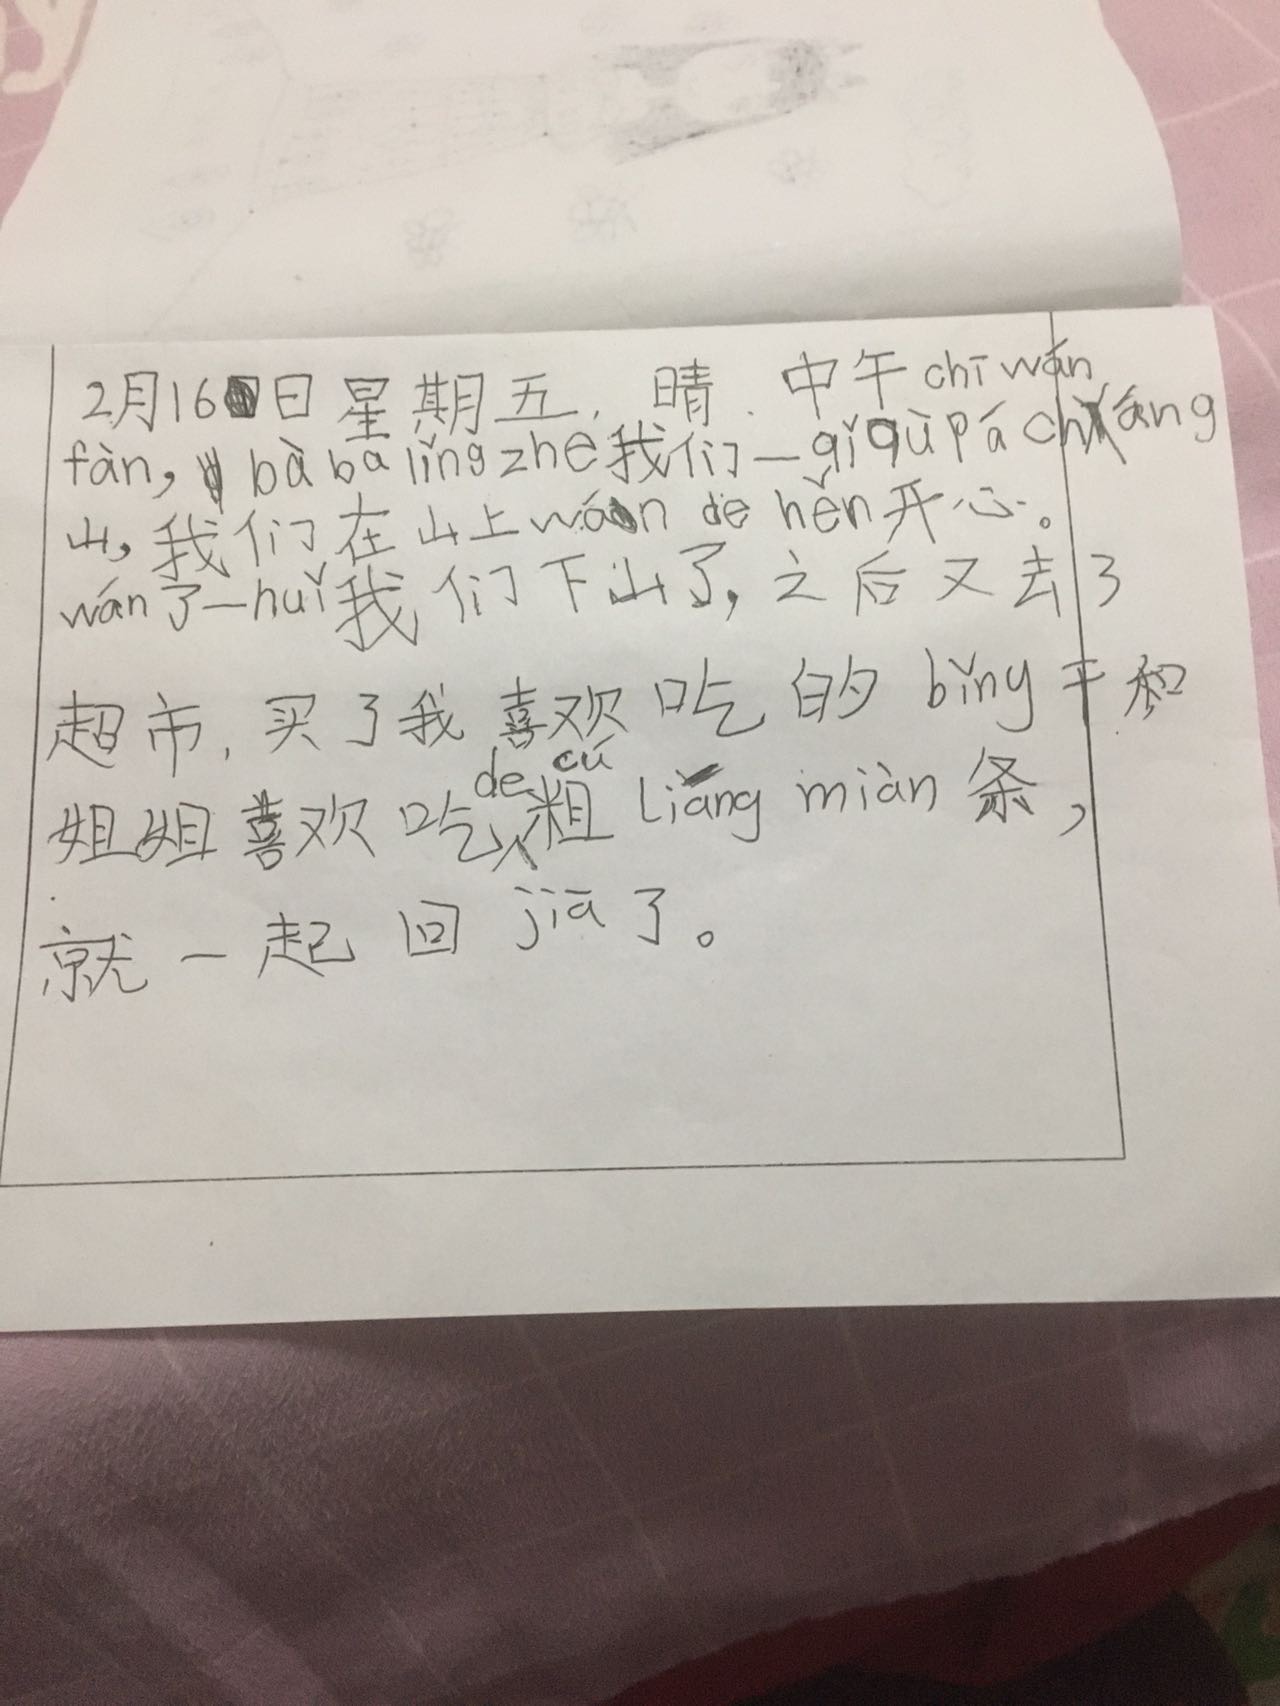 2月16日星期五，晴．中午chī wán
fàn，bà ba lǐng zhe我们一qǐ qù pá cháng
山，我们在山上wán de hěn开心。
wán了一huǐ我们下山了，之后又去了
超市，买了我喜欢吃的bǐng干和
姐姐喜欢吃de cū粗liáng miàn条，
就一起回jiā了。